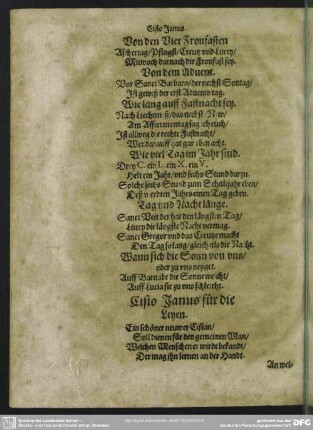 Cisio Janus.
Von den Vier Fronfasten
Aschertag/Pfingst/Creutz vnd Lucey/
Mitwoch darnach die Fronfast sey.
Von dem Aduent.
Vor Sanct Barbara/der nechst Sontag/
Ist gewiß der erst Aduents tag.
Wie lang auff Fastnacht sey.
Nach Liechtmeß/das nechst New/
Am Affter montag sag ich euch/
Ist allweg die rechte Fastnacht/
Wer darauff hat gar eben acht.
Wie viel Tag im Jahr sind.
Drey C. ein L. ein X. ein V.
Helt ein Jahr/vnd sechs Stund darzu.
Solche sechs Stund zum Schaltjahr eben/
Deß vierdten Jahrs einen Tag geben.
Tag vnd Nacht länge.
Sanct Veit der hat den längsten Tag/
Lucey die längste Nacht vermag.
Sanct Gregor vnd das Creutze macht
Den Tag so lang/gleich als die Nacht.
Wann sich die Sonn von vns/
oder zu vns neyget.
Auff Barnabe die Sonne weicht/
Auff Lucia sie zu vns schleicht.
Cisio Janus für die
Leyen.
Ein schöner neuwer Cisian/
Soll dienen für den gemeinen Man/
Welchen Menschen er wirdt bekandt/
Der mag ihn lernen an der Handt.
An wel-